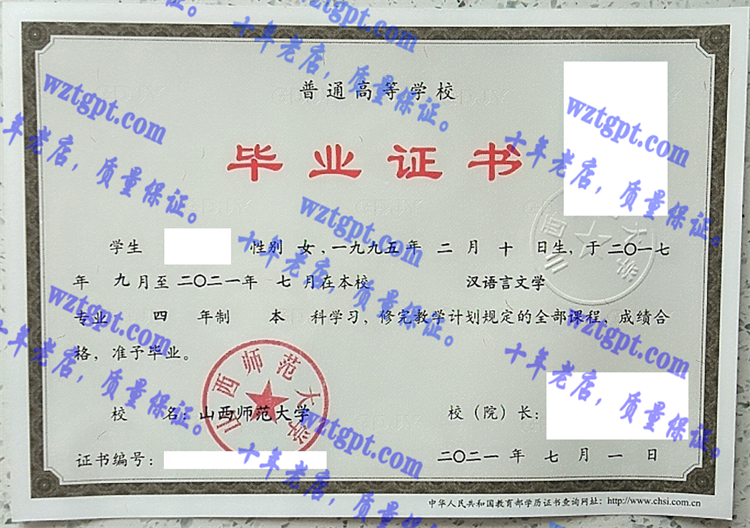 普通高等学校
毕业证书
学生 性别 女，一九九五年 二 月 十 日生，于二〇一七
年 九 月至二〇二一年 七 月在本校 汉语言文学
专业 四 年制 本 科学习，修完教学计划规定的全部课程、成绩合
格，准予毕业。
山西师范大学
校 名：山西师范大学 校（院）长：
证书编号： 二〇二一年 七 月 一 日
中华人民共和国教育部学历证书查询网址：http://www.chsi.com.cn
wztgpt.com
十年老店，质量保证。
wztgpt.com
十年老店，质量保证。
wztgpt.com
十年老店，质量保证。
wztgpt.com
十年老店，质量保证。
wztgpt.com
十年老店，质量保证。
wztgpt.com
十年老店，质量保证。
wztgpt.com
十年老店，质量保证。
wztgpt.com
十年老店，质量保证。
wztgpt.com
十年老店，质量保证。